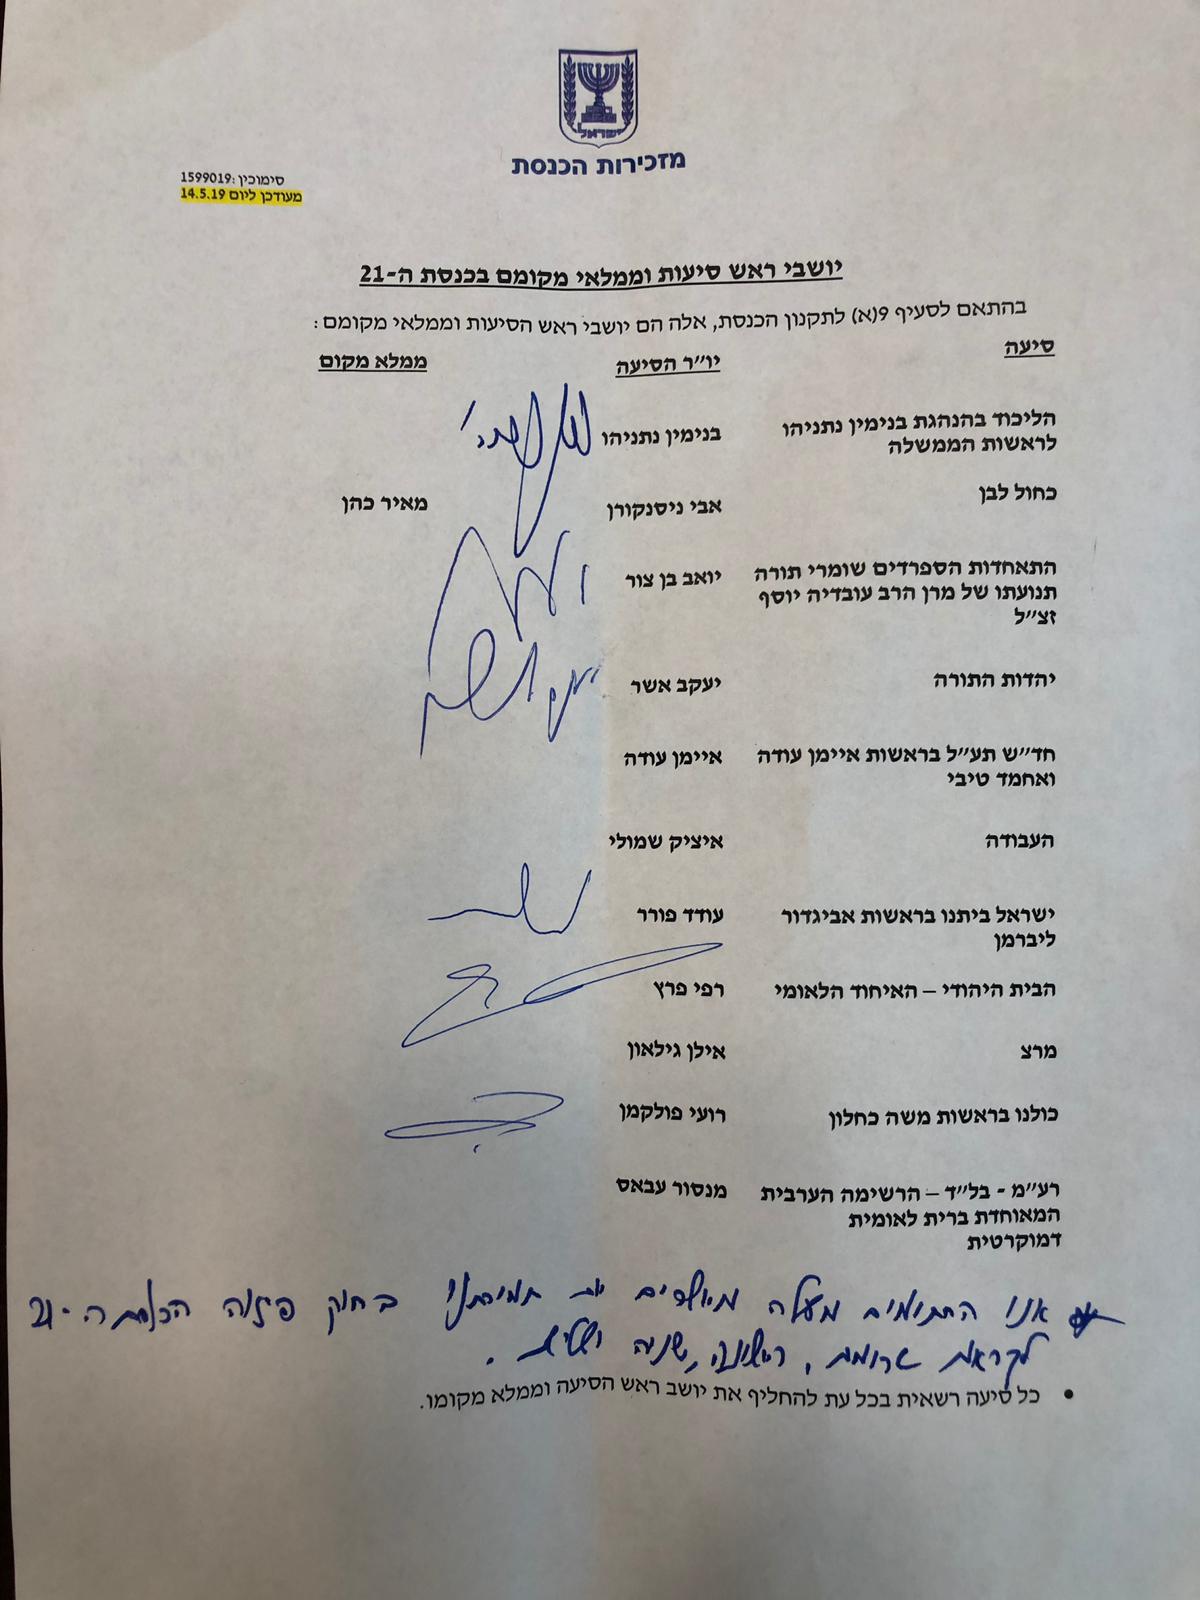 ישראל
מזכירות הכנסת
סימוכין: 1599019
מעודכן ליום 14.5.19
יושבי ראש סיעות וממלאי מקומם בכנסת ה-21
בהתאם לסעיף 9(א) לתקנון הכנסת, אלה הם יושבי ראש הסיעות וממלאי מקומם:
סיעה יו״ר הסיעה ממלא מקום
הליכוד בהנהגת בנימין נתניהו בנימין נתניהו
לראשות הממשלה
כחול לבן אבי ניסנקורן מאיר כהן
התאחדות הספרדים שומרי תורה יואב בן צור
תנועתו של מרן הרב עובדיה יוסף
זצ״ל
יהדות התורה יעקב אשר
חד״ש תע״ל בראשות איימן עודה איימן עודה
ואחמד טיבי
העבודה איציק שמולי
ישראל ביתנו בראשות אביגדור עודד פורר
ליברמן
הבית היהודי – האיחוד הלאומי רפי פרץ
מרצ אילן גילאון
כולנו בראשות משה כחלון רועי פולקמן
רע״מ - בל״ד – הרשימה הערבית מנסור עבאס
המאוחדת ברית לאומית
דמוקרטית
אנו החתומים מעלה מאשרים את תמיכתנו בחוק פיזור הכנסת ה-21
לקראת טרומית, ראשונה, שניה ושלישית.
• כל סיעה רשאית בכל עת להחליף את יושב ראש הסיעה וממלא מקומו.